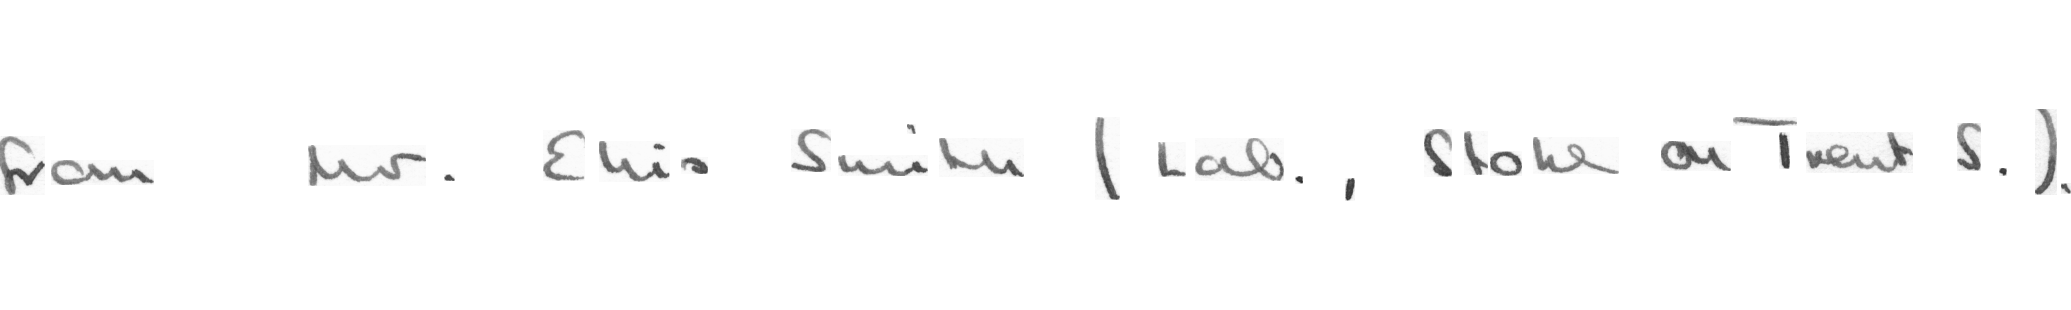 from Mr. Ellis Smith (Lab., Stoke on Trent S.).